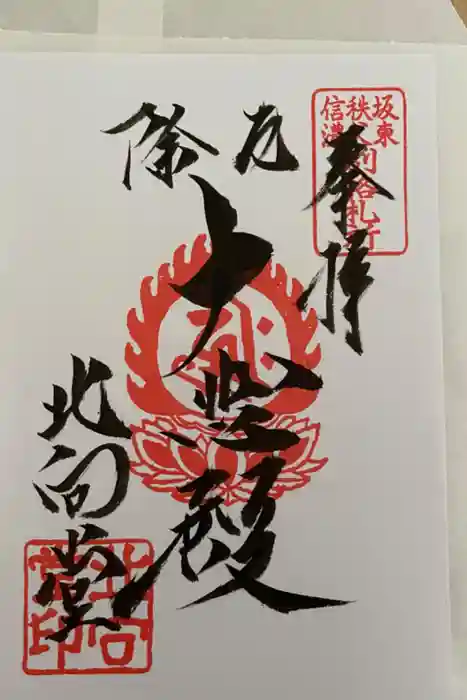 坂東
秩父
信濃
別格札所
奉拝
厄除
大悲殿
北向堂
北向
堂印